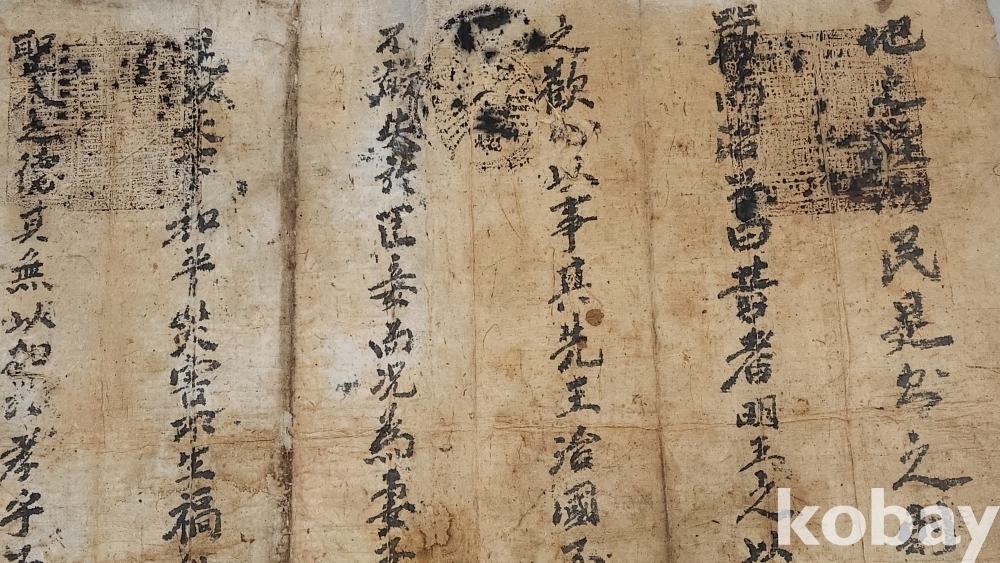 地之經民是則之
嚴而治子曰昔者明王之以
之歡心以事其先王治國不
不敢失於臣妾而況為妻子
是以天下和平災害不生禍
聖人之德其無以加於孝乎
kobay